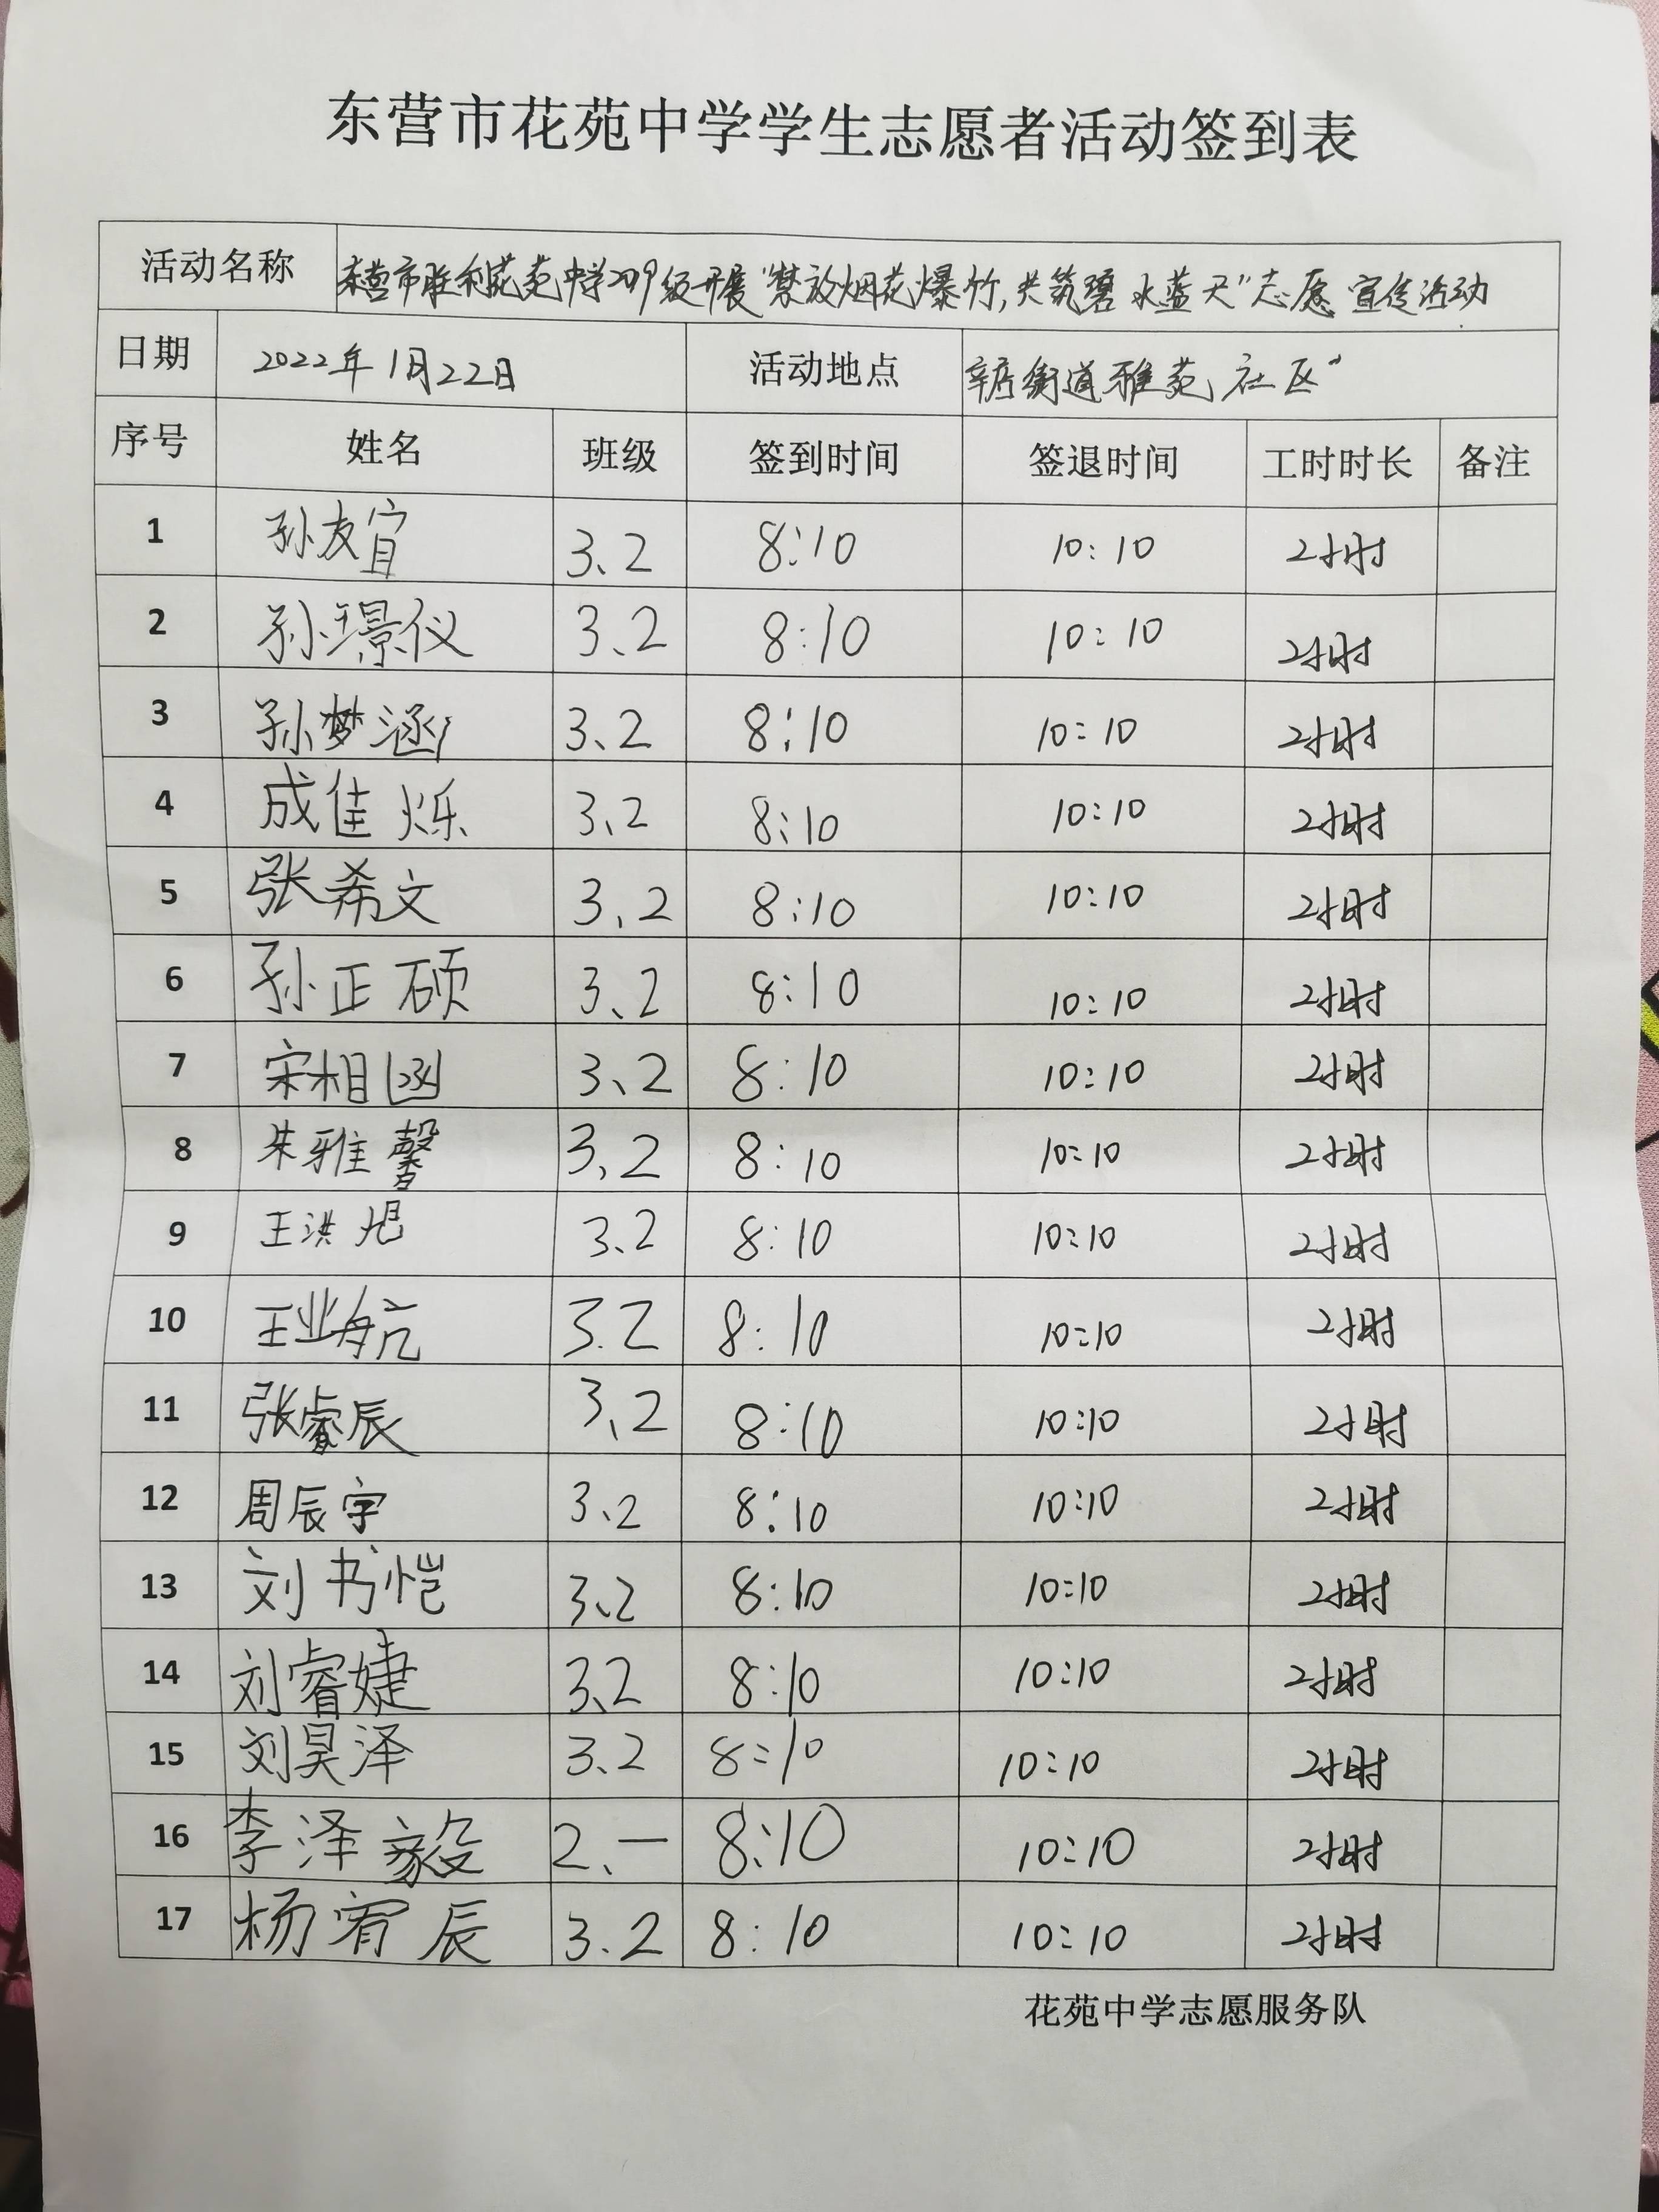 东营市花苑中学学生志愿者活动签到表
活动名称 东营市胜利花苑中学2019级开展“禁放烟花爆竹,共筑碧水蓝天”志愿宣传活动
日期 2022年1月22日 活动地点 辛店街道雅苑社区
序号 姓名 班级 签到时间 签退时间 工时时长 备注
1 孙友宜 3.2 8:10 10:10 2小时
2 孙璟仪 3.2 8:10 10:10 2小时
3 孙梦涵 3.2 8:10 10:10 2小时
4 成佳烁 3.2 8:10 10:10 2小时
5 张希文 3.2 8:10 10:10 2小时
6 孙正硕 3.2 8:10 10:10 2小时
7 宋相函 3.2 8:10 10:10 2小时
8 朱雅馨 3.2 8:10 10:10 2小时
9 王洪 3.2 8:10 10:10 2小时
10 王业航 3.2 8:10 10:10 2小时
11 张睿辰 3.2 8:10 10:10 2小时
12 周辰宇 3.2 8:10 10:10 2小时
13 刘书恺 3.2 8:10 10:10 2小时
14 刘睿婕 3.2 8:10 10:10 2小时
15 刘昊泽 3.2 8:10 10:10 2小时
16 李泽毅 2.一 8:10 10:10 2小时
17 杨宥辰 3.2 8:10 10:10 2小时
花苑中学志愿服务队